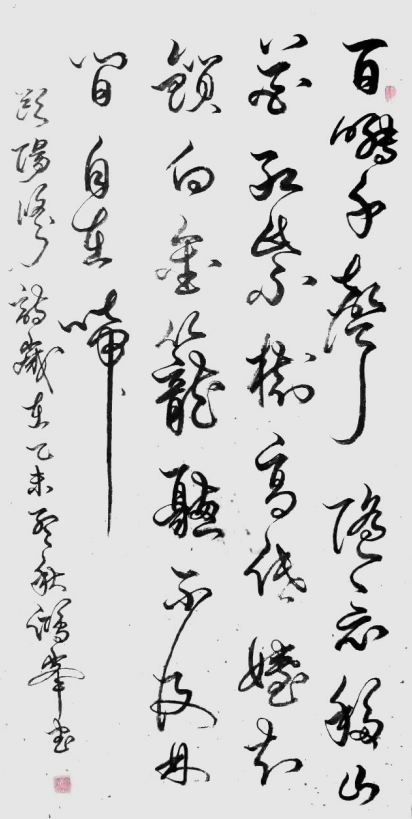 百囀千聲隨意移山
花紅紫樹高低始知
鎖向金籠聽不及林
間自在啼
歐陽修詩歲在乙未秋鴻峯书